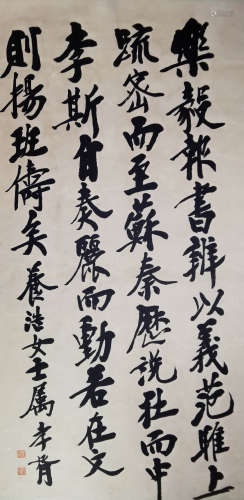 樂毅報書辨以義范雎上
疏密而至蘇秦歷說壯而中
李斯自奏麗而動若在文
則揚班儔矣 養浩女士屬 李胥